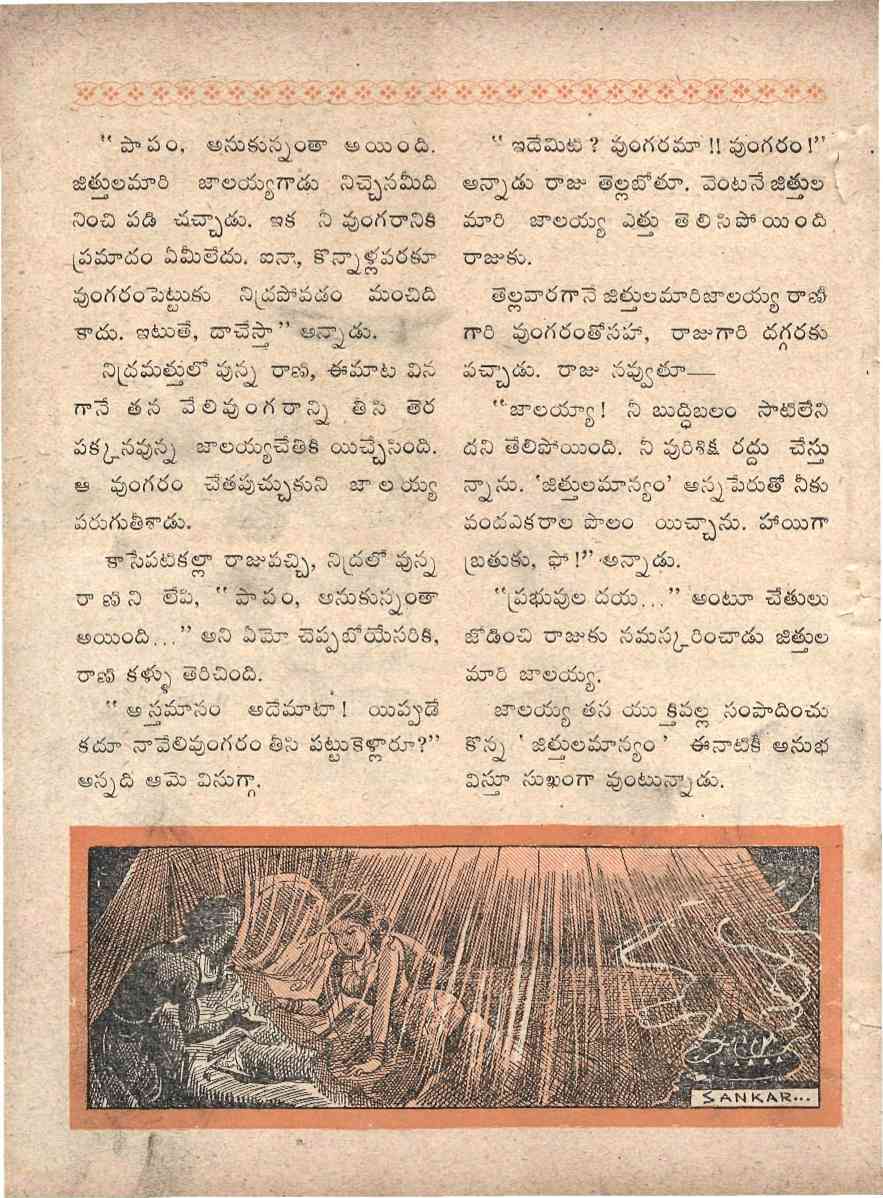 “ పాపం, అనుకున్నంతా అయింది.
జిత్తులమారి జాలయ్యగాడు నిచ్చెనమీది
నించి పడి చచ్చాడు. ఇక నీ వుంగరానికి
ప్రమాదం ఏమీలేదు. ఐనా, కొన్నాళ్లవరకూ
వుంగరంపెట్టుకు నిద్రపోవడం మంచిది
కాదు. ఇటుతే, దాచేస్తా” అన్నాడు.
నిద్రమత్తులో వున్న రాణి, ఈమాట విన
గానే తన వేలివుంగరాన్ని తీసి తెర
పక్కనవున్న జాలయ్యచేతికి యిచ్చేసింది.
ఆ వుంగరం చేతపుచ్చుకుని జాలయ్య
పరుగుతీశాడు.
కాసేపటికల్లా రాజువచ్చి, నిద్రలో వున్న
రాణిని లేపి, “ పాపం, అనుకున్నంతా
అయింది...” అని ఏమో చెప్పబోయేసరికి,
రాణి కళ్ళు తెరిచింది.
“ అస్తమానం అదేమాటా! యిప్పుడే
కదూ నావేలివుంగరం తీసి పట్టుకెళ్లారూ?”
అన్నది ఆమె విసుగ్గా.
“ ఇదేమిటి? వుంగరమా!! వుంగరం!”
అన్నాడు రాజు తెల్లబోతూ. వెంటనే జిత్తుల
మారి జాలయ్య ఎత్తు తెలిసిపోయింది
రాజుకు.
తెల్లవారగానే జిత్తులమారిజాలయ్య రాణీ
గారి వుంగరంతోసహా, రాజుగారి దగ్గరకు
వచ్చాడు. రాజు నవ్వుతూ—
“జాలయ్యా! నీ బుద్ధిబలం సాటిలేని
దని తేలిపోయింది. నీ వురిశిక్ష రద్దు చేస్తు
న్నాను. ‘జిత్తులమాన్యం’ అన్నపేరుతో నీకు
వందఎకరాల పొలం యిచ్చాను. హాయిగా
బ్రతుకు, ఫో!” అన్నాడు.
“ప్రభువుల దయ...” అంటూ చేతులు
జోడించి రాజుకు నమస్కరించాడు జిత్తుల
మారి జాలయ్య.
జాలయ్య తన యుక్తివల్ల సంపాదించు
కొన్న ‘ జిత్తులమాన్యం ’ ఈనాటికీ అనుభ
విస్తూ సుఖంగా వుంటున్నాడు.
SANKAR...